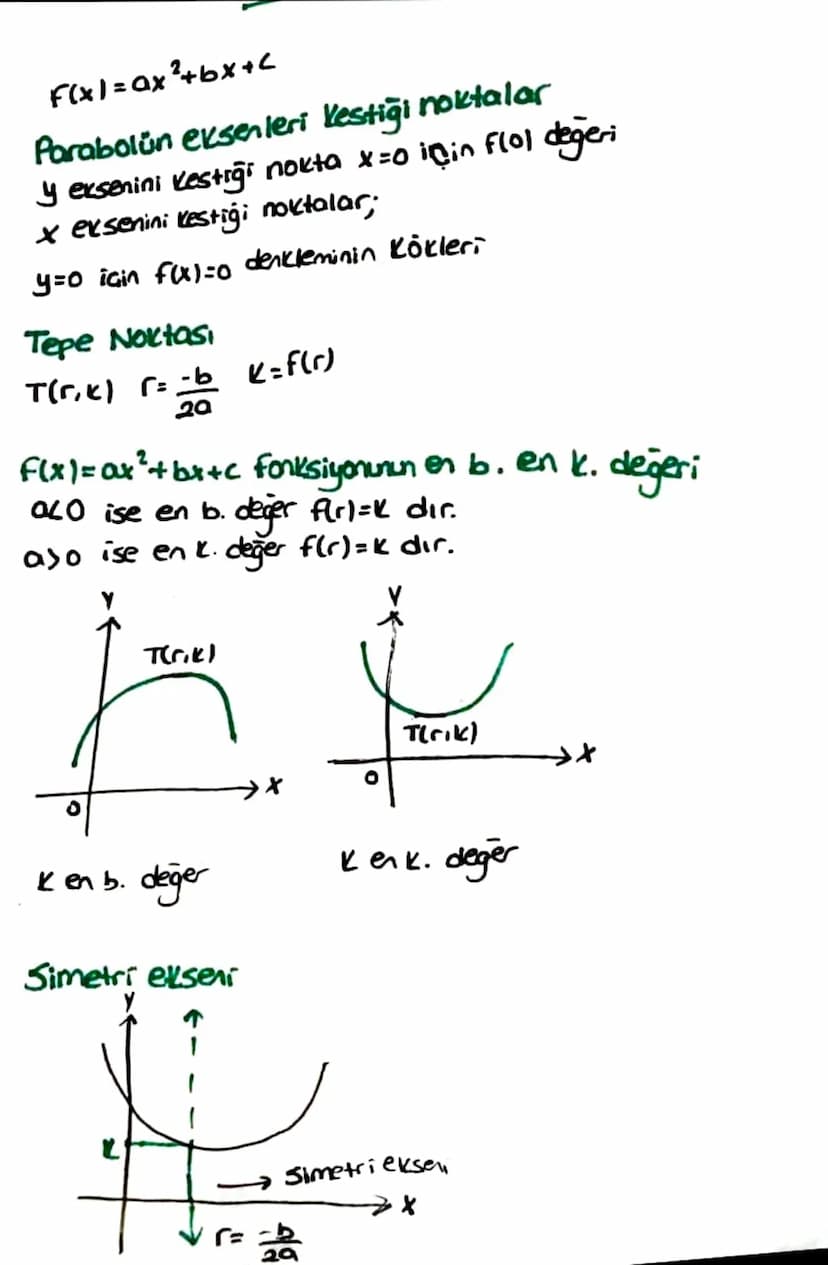 f(x)=ax²+bx+c
Parabolün eksenleri kestiği noktalar
y eksenini kestiği nokta x=0 için f(0) değeri
x eksenini kestiği noktalar;
y=0 icin f(x)=0 denkleminin kökleri
Tepe Noktası
T(r,k) r= -b/2a k=f(r)
f(x)=ax²+bx+c fonksiyonunun en b. en k. değeri
a<0 ise en b. değer f(r)=k dır.
a>0 ise en k. değer f(r)=k dır.
y
T(r,k)
x
0
y
T(r,k)
x
0
k en b. değer
k en k. değer
Simetri ekseni
y
k
→ Simetri ekseni
x
r= -b/2a